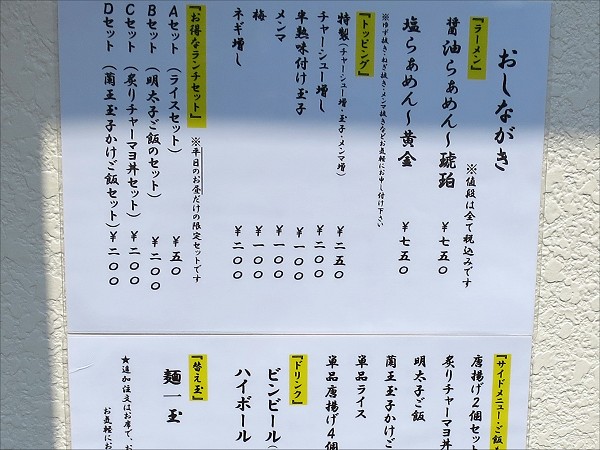 おしながき
※値段は全て税込みです
『ラーメン』
醤油らあめん～琥珀 ￥七五〇
塩らあめん～黄金 ￥七五〇
※ゆず抜き・ねぎ抜き・メンマ抜きなどお気軽にお申し付け下さい
『トッピング』
特製（チャーシュー増・玉子・メンマ増） ￥二五〇
チャーシュー増し ￥二〇〇
半熟味付け玉子 ￥一〇〇
メンマ ￥一〇〇
梅 ￥一〇〇
ネギ増し ￥二〇〇
『お得なランチセット』 ※平日のお昼だけの限定セットです
Aセット（ライスセット） ￥五〇
Bセット（明太子ご飯のセット） ￥二〇〇
Cセット（炙りチャーマヨ丼セット） ￥二〇〇
Dセット（蘭王玉子かけご飯セット） ￥二〇〇
『サイドメニュー・ご飯
唐揚げ2個セット
炙りチャーマヨ丼
明太子ご飯
蘭王玉子かけご
単品ライス
単品唐揚げ4個
『ドリンク』
ビンビール（
ハイボール
『替え玉』
麺一玉
★追加注文はお席で、お
お気軽にお